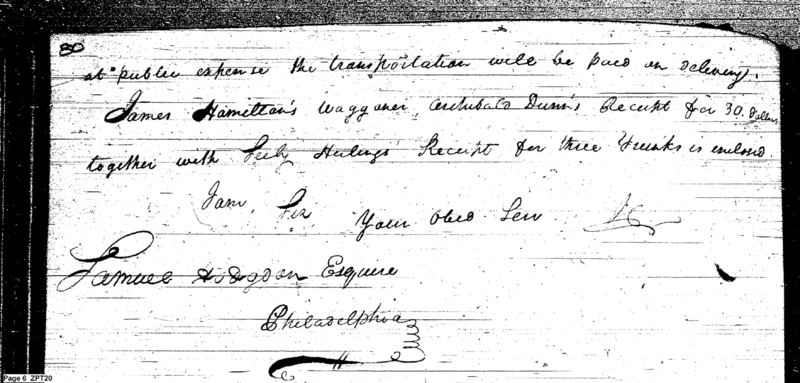 80
at public expense the transportation will be paid on delivery.
James Hamilton's Waggoner, Archibald Dunn's Receipt for 30. Dollars
together with Hulings Receipt for three Trunks is enclosed.
I am, Sir Your Obed. Serv
Samuel Hodgdon Esquire
Philadelphia
Page 6 ZPT20